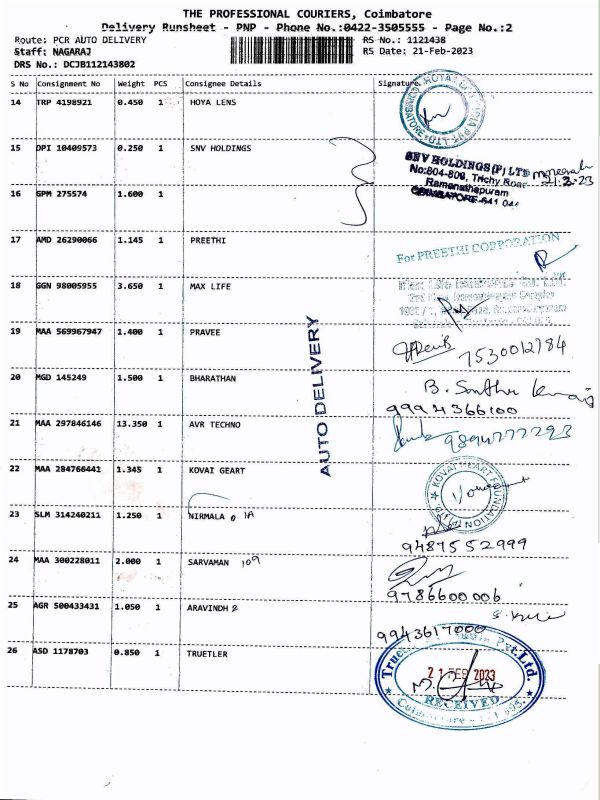 THE PROFESSIONAL COURIERS, Coimbatore
Delivery Runsheet - PNP - Phone No.:0422-3505555 - Page No.:2
Route: PCR AUTO DELIVERY RS No.: 1121438
Staff: NAGARAJ RS Date: 21-Feb-2023
DRS No.: DCJB112143802
S No Consignment No Weight PCS Consignee Details Signature
14 TRP 4198921 0.450 1 HOYA LENS
15 DPI 10409573 0.250 1 SNV HOLDINGS
SNV HOLDINGS (P) LTD
No:804-806, Trichy Road
Ramanathapuram
COIMBATORE-641 04
21.2.23
16 GPM 275574 1.600 1
17 AMD 26290066 1.145 1 PREETHI
For PREETHI CORPORATION
18 GGN 98005955 3.650 1 MAX LIFE
19 MAA 569967947 1.400 1 PRAVEE
7530012784
20 MGD 145249 1.500 1 BHARATHAN
B. Santhu
9994366100
AUTO DELIVERY
21 MAA 297846146 13.350 1 AVR TECHNO
9894777293
22 MAA 284766441 1.345 1 KOVAI GEART
KOVAI HEART FOUNDATION
23 SLM 314240211 1.250 1 NIRMALA
9487552999
24 MAA 300228011 2.000 1 SARVAMAN 109
9786600006
25 AGR 500433431 1.050 1 ARAVINDH
9943617000
26 ASD 1178703 0.850 1 TRUETLER
Pvt.Ltd.
21 FEB 2023
RECEIVED